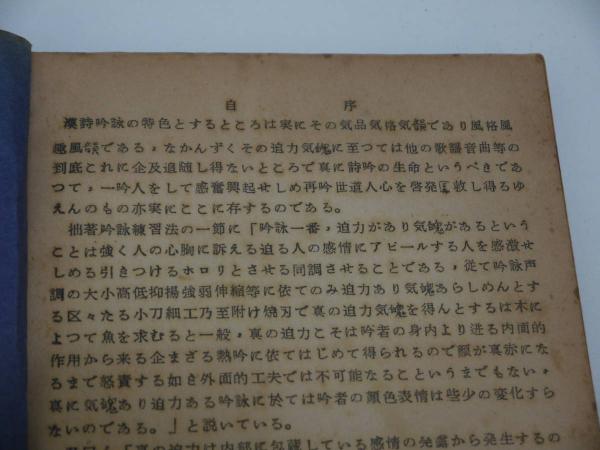 自序
漢詩吟詠の特色とするところは実にその気品気格気韻であり風格風
趣風韻である，なかんずくその迫力気魄に至つては他の歌謡音曲等の
到底これに企及追随し得ないところで真に詩吟の生命というべきであ
つて，一吟人をして感奮興起せしめ再吟世道人心を啓発匡救し得るゆ
えんのもの亦実にここに存するのである。
拙著吟詠練習法の一節に「吟詠一番，迫力があり気魄があるという
ことは強く人の心胸に訴える迫る人の感情にアピールする人を感激せ
しめる引きつけるホロリとさせる同調させることである，従て吟詠声
調の大小高低抑揚強弱伸縮等に依てのみ迫力あり気魄あらしめんとす
る区々たる小刀細工乃至附け焼刃で真の迫力気魄を得んとするは木に
よつて魚を求むると一般，真の迫力こそは吟者の身内より迸る内面的
作用から来る企まざる熱吟に依てはじめて得られるので顔が真赤にな
るまで怒責する如き外面的工夫では不可能なるこというまでもない，
真に気魄あり迫力ある吟詠に於ては吟者の顔色表情は些少の変化すら
ないのである。」と説いている。
「真の迫力は内部に包蔵している感情の発露から発生するの